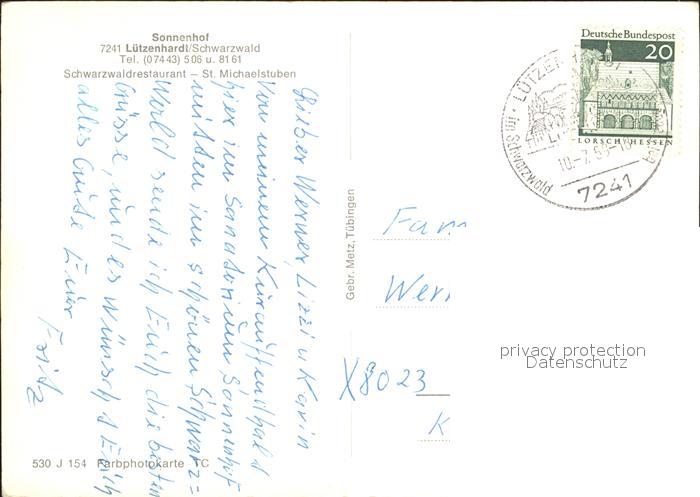 Sonnenhof
7241 Lützenhardt/Schwarzwald
Tel. (07443) 506 u. 8161
Schwarzwaldrestaurant – St. Michaelstuben
Lieber Werner, Lizzi u Karin
Von meinem Kuraufenthalt
hier im Sanatorium Sonnenhof
mitten im schönen Schwarz=
Wald sende ich Euch die besten
Grüsse, und es wünscht Euch
alles Gute Euer
Fritz
530 J 154 Farbphotokarte TC
Gebr. Metz, Tübingen
Deutsche Bundespost
20
LORSCH/HESSEN
im Schwarzwald
7241
Fam
Wer
X8023
K
privacy protection
Datenschutz